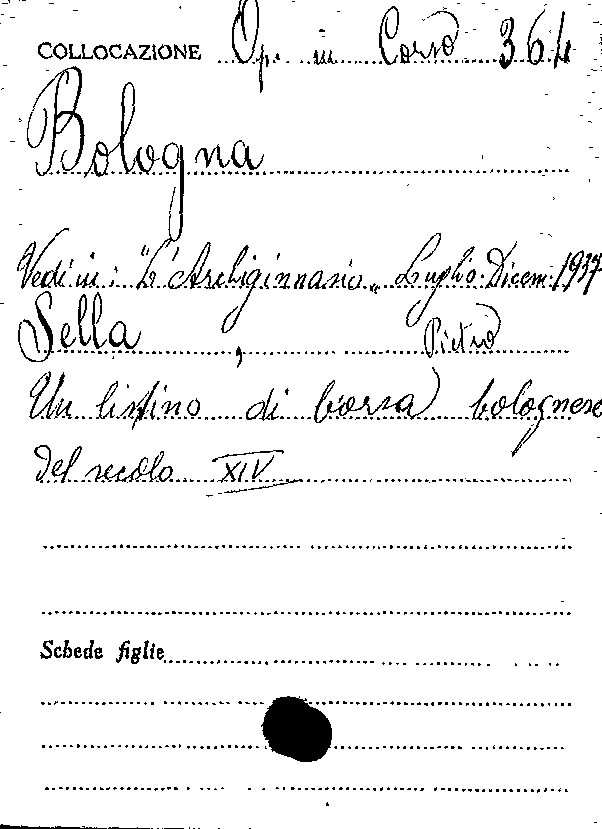 COLLOCAZIONE Op. in Corso 364
Bologna
Vedi in: "L'Archiginnasio„ Luglio-Dicem. 1937
Sella, Pietro
Un listino di borsa bolognese
del secolo XIV
Schede figlie